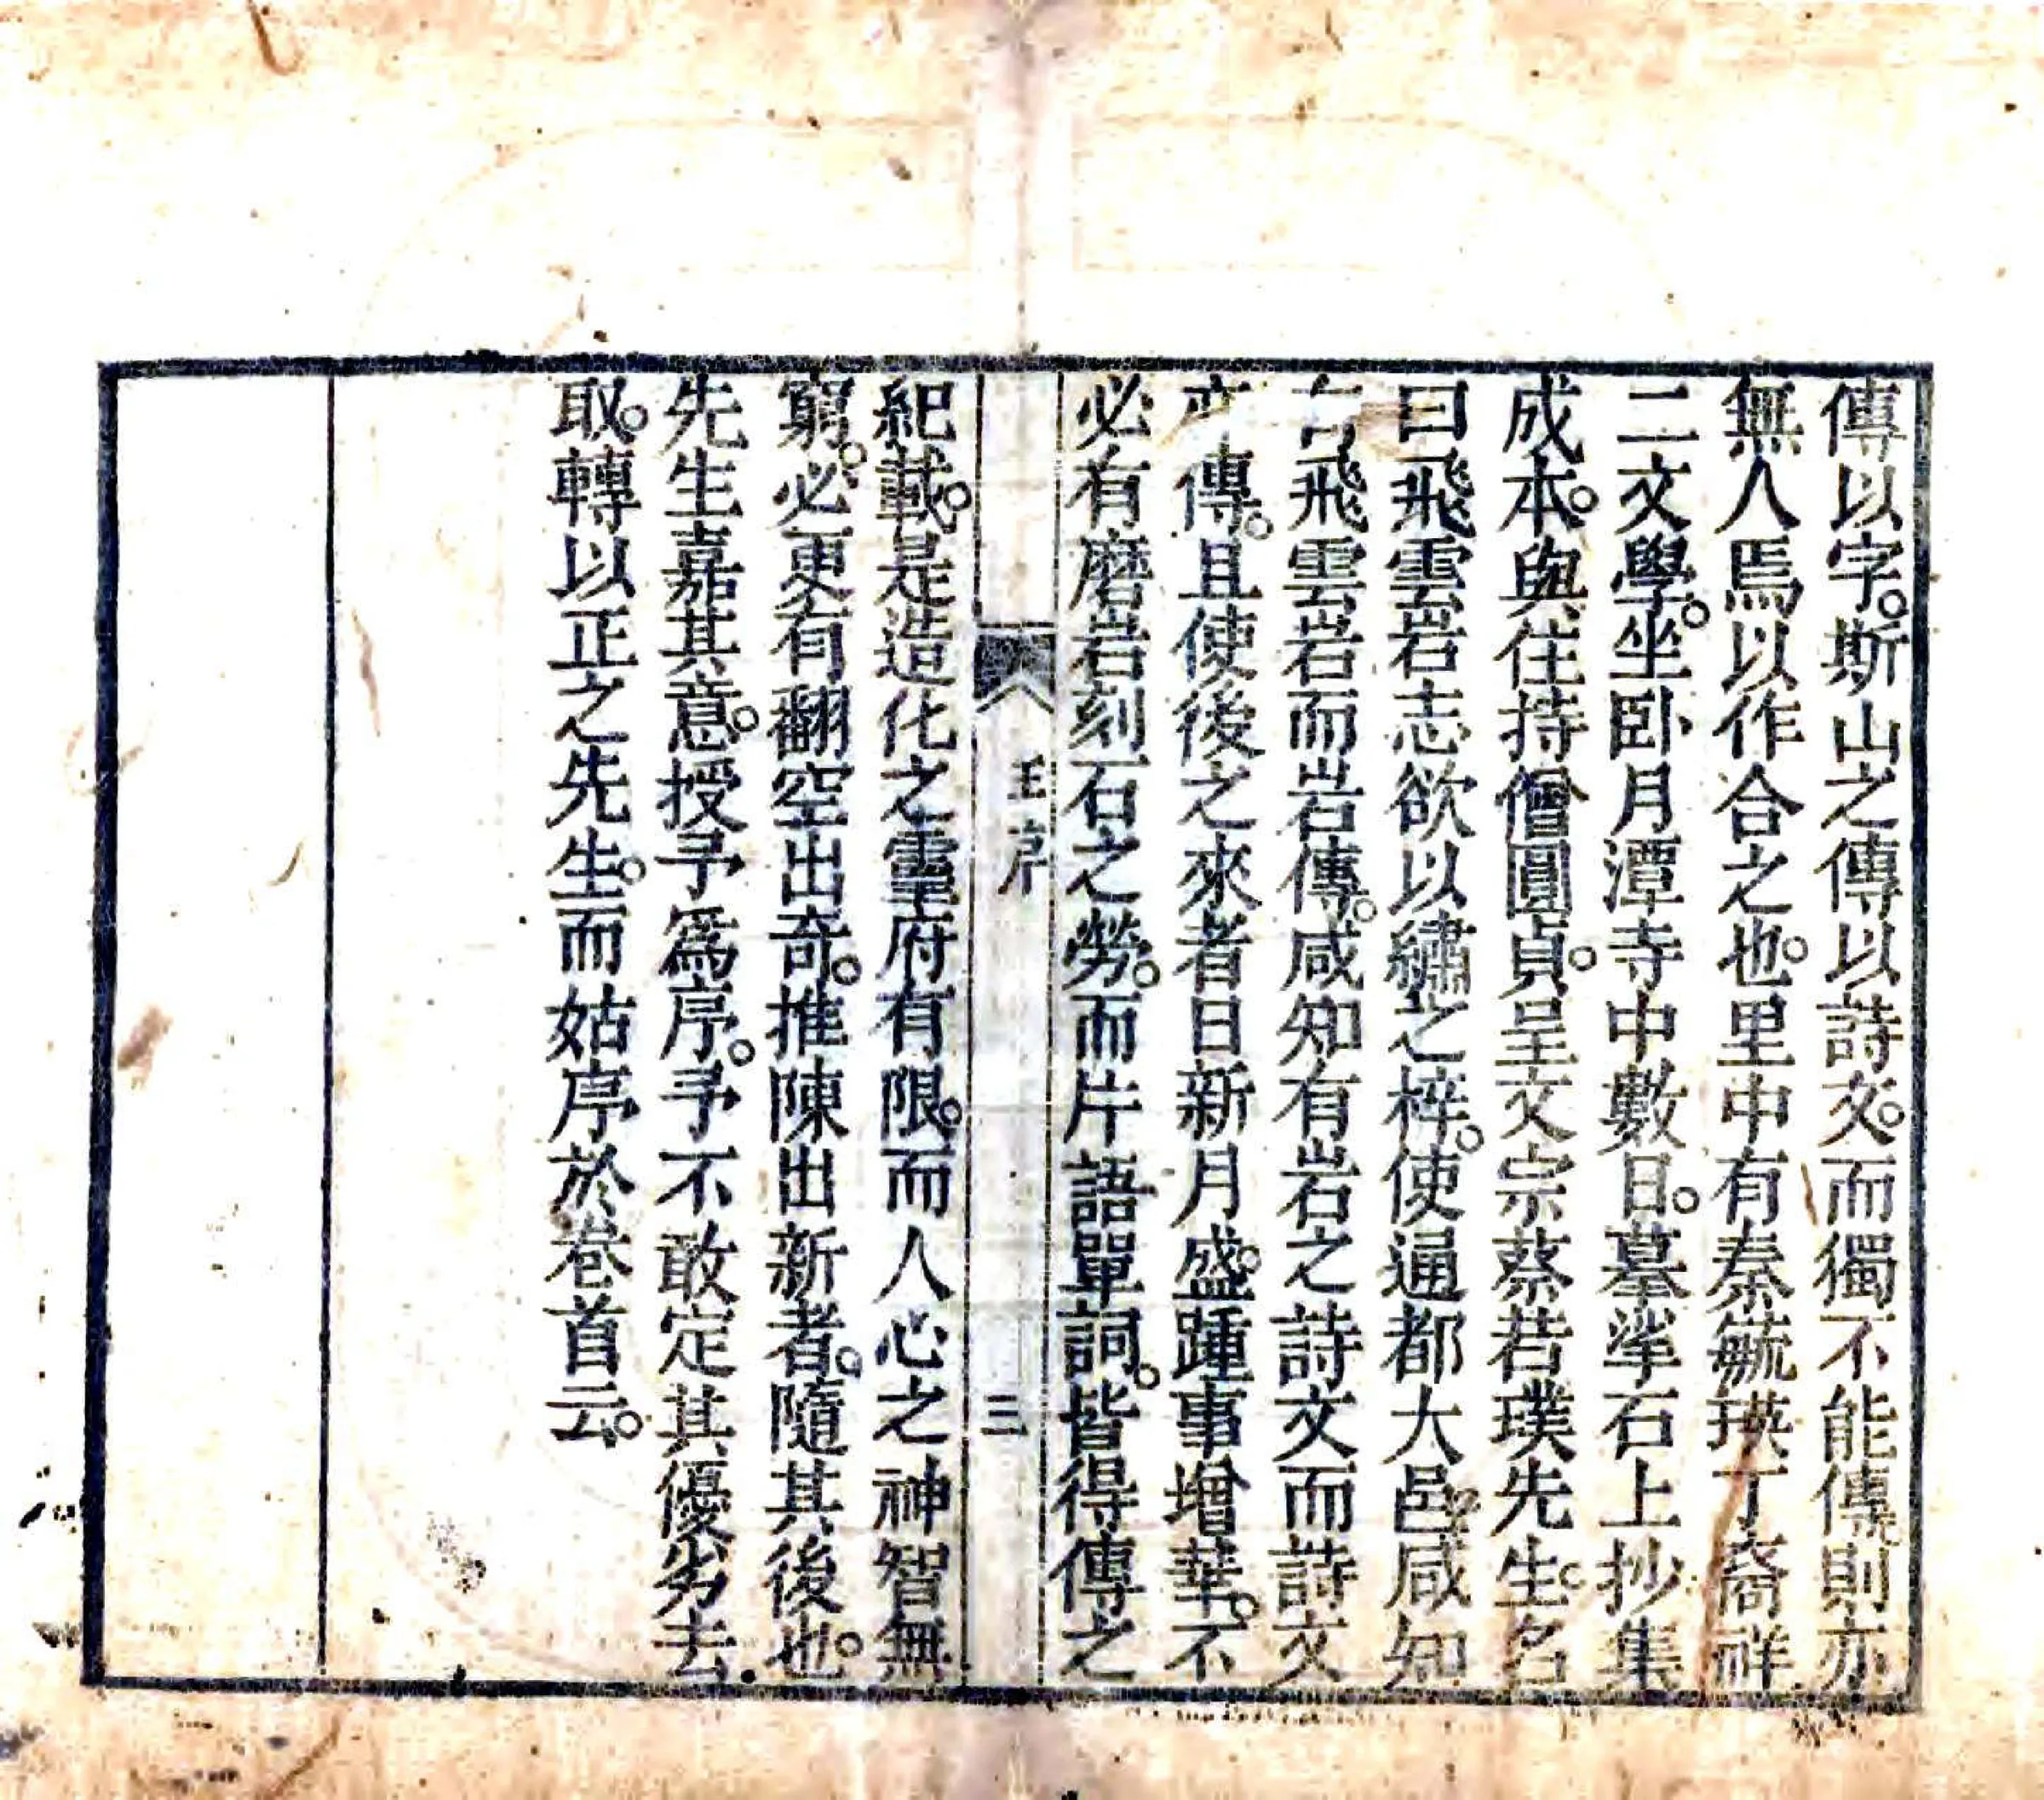 傳以字。斯山之傳以詩文。而獨不能傳。則亦
無人焉以作合之也。里中有秦毓瑛丁裔祥
二文學。坐卧月潭寺中數日。摹挲石上抄集
成本。與住持僧圓貞。呈文宗蔡若璞先生。名
曰飛雲岩志欲以繡之梓。使通都大邑咸知
有飛雲岩而岩傳。咸知有岩之詩文而詩文
亦傳。且使後之來者日新月盛。踵事增華。不
必有磨岩刻石之勞。而片語單詞。皆得傳之
王序
三
紀載。是造化之靈府有限。而人心之神智無
窮。必更有翻空出奇。推陳出新者。隨其後也。
先生嘉其意。授予爲序。予不敢定其優劣去
取。轉以正之先生。而姑序於卷首云。